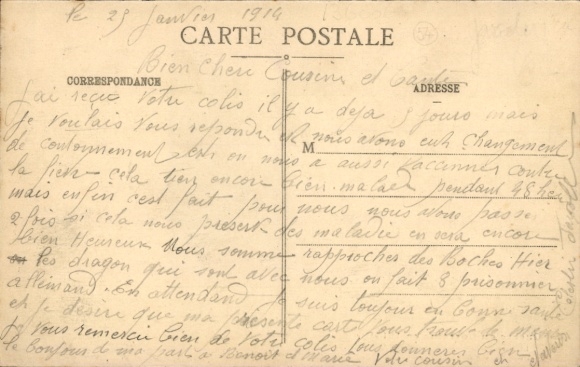 le 25 Janvier 1914
CARTE POSTALE
Bien Chere Cousine et
CORRESPONDANCE
ADRESSE
J'ai reçu Votre colis il y a deja 5 jours mais
Je voulais Vous repondre et nous avons eut changement
M
de contonnement en on nous a aussi vacciner contre
la fievre cela tien encore bien malade pendant 48 hes
mais enfin c'est fait pour nous nous avons passé
2 fois si cela nous preserve des maladie en sera encore
bien Heureux Nous somme rapprocher des Boches Hier
les dragon qui sont avec nous on fait 8 prisonnier
allemand. En attendand Je suis toujour en bonne santé
et Je désire que ma présente carte Vous trouve de meme
Je Vous remerci bien de Votre colis Vous donnerez bien
le bonjour de ma part a Benoit et Marie Votre cousin